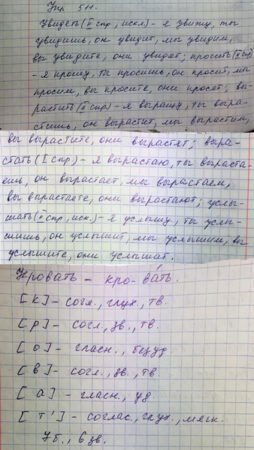 Упр. 511.
Увидеть (II спр., искл.) - я увижу, ты
увидишь, он увидит, мы увидим,
вы увидите, они увидят; просить (II спр)
- я прошу, ты просишь, он просит, мы
просим, вы просите, они просят; вы-
растить (II спр) - я выращу, ты выра-
стишь, он вырастит, мы вырастим,
вы вырастите, они вырастят; выра-
стать (I спр) - я вырастаю, ты выраста-
ешь, он вырастает, мы вырастаем,
вы вырастаете, они вырастают; услы-
шать (II спр, искл.) - я услышу, ты услы-
шишь, он услышит, мы услышим, вы
услышите, они услышат.
Кровать - кро-ва́ть.
[к] - согл., глух., тв.
[р] - согл., зв., тв.
[о] - гласн., безуд
[в] - согл., зв., тв
[а] - гласн., уд
[т'] - соглас., глух., мягк.
7б., 6зв.